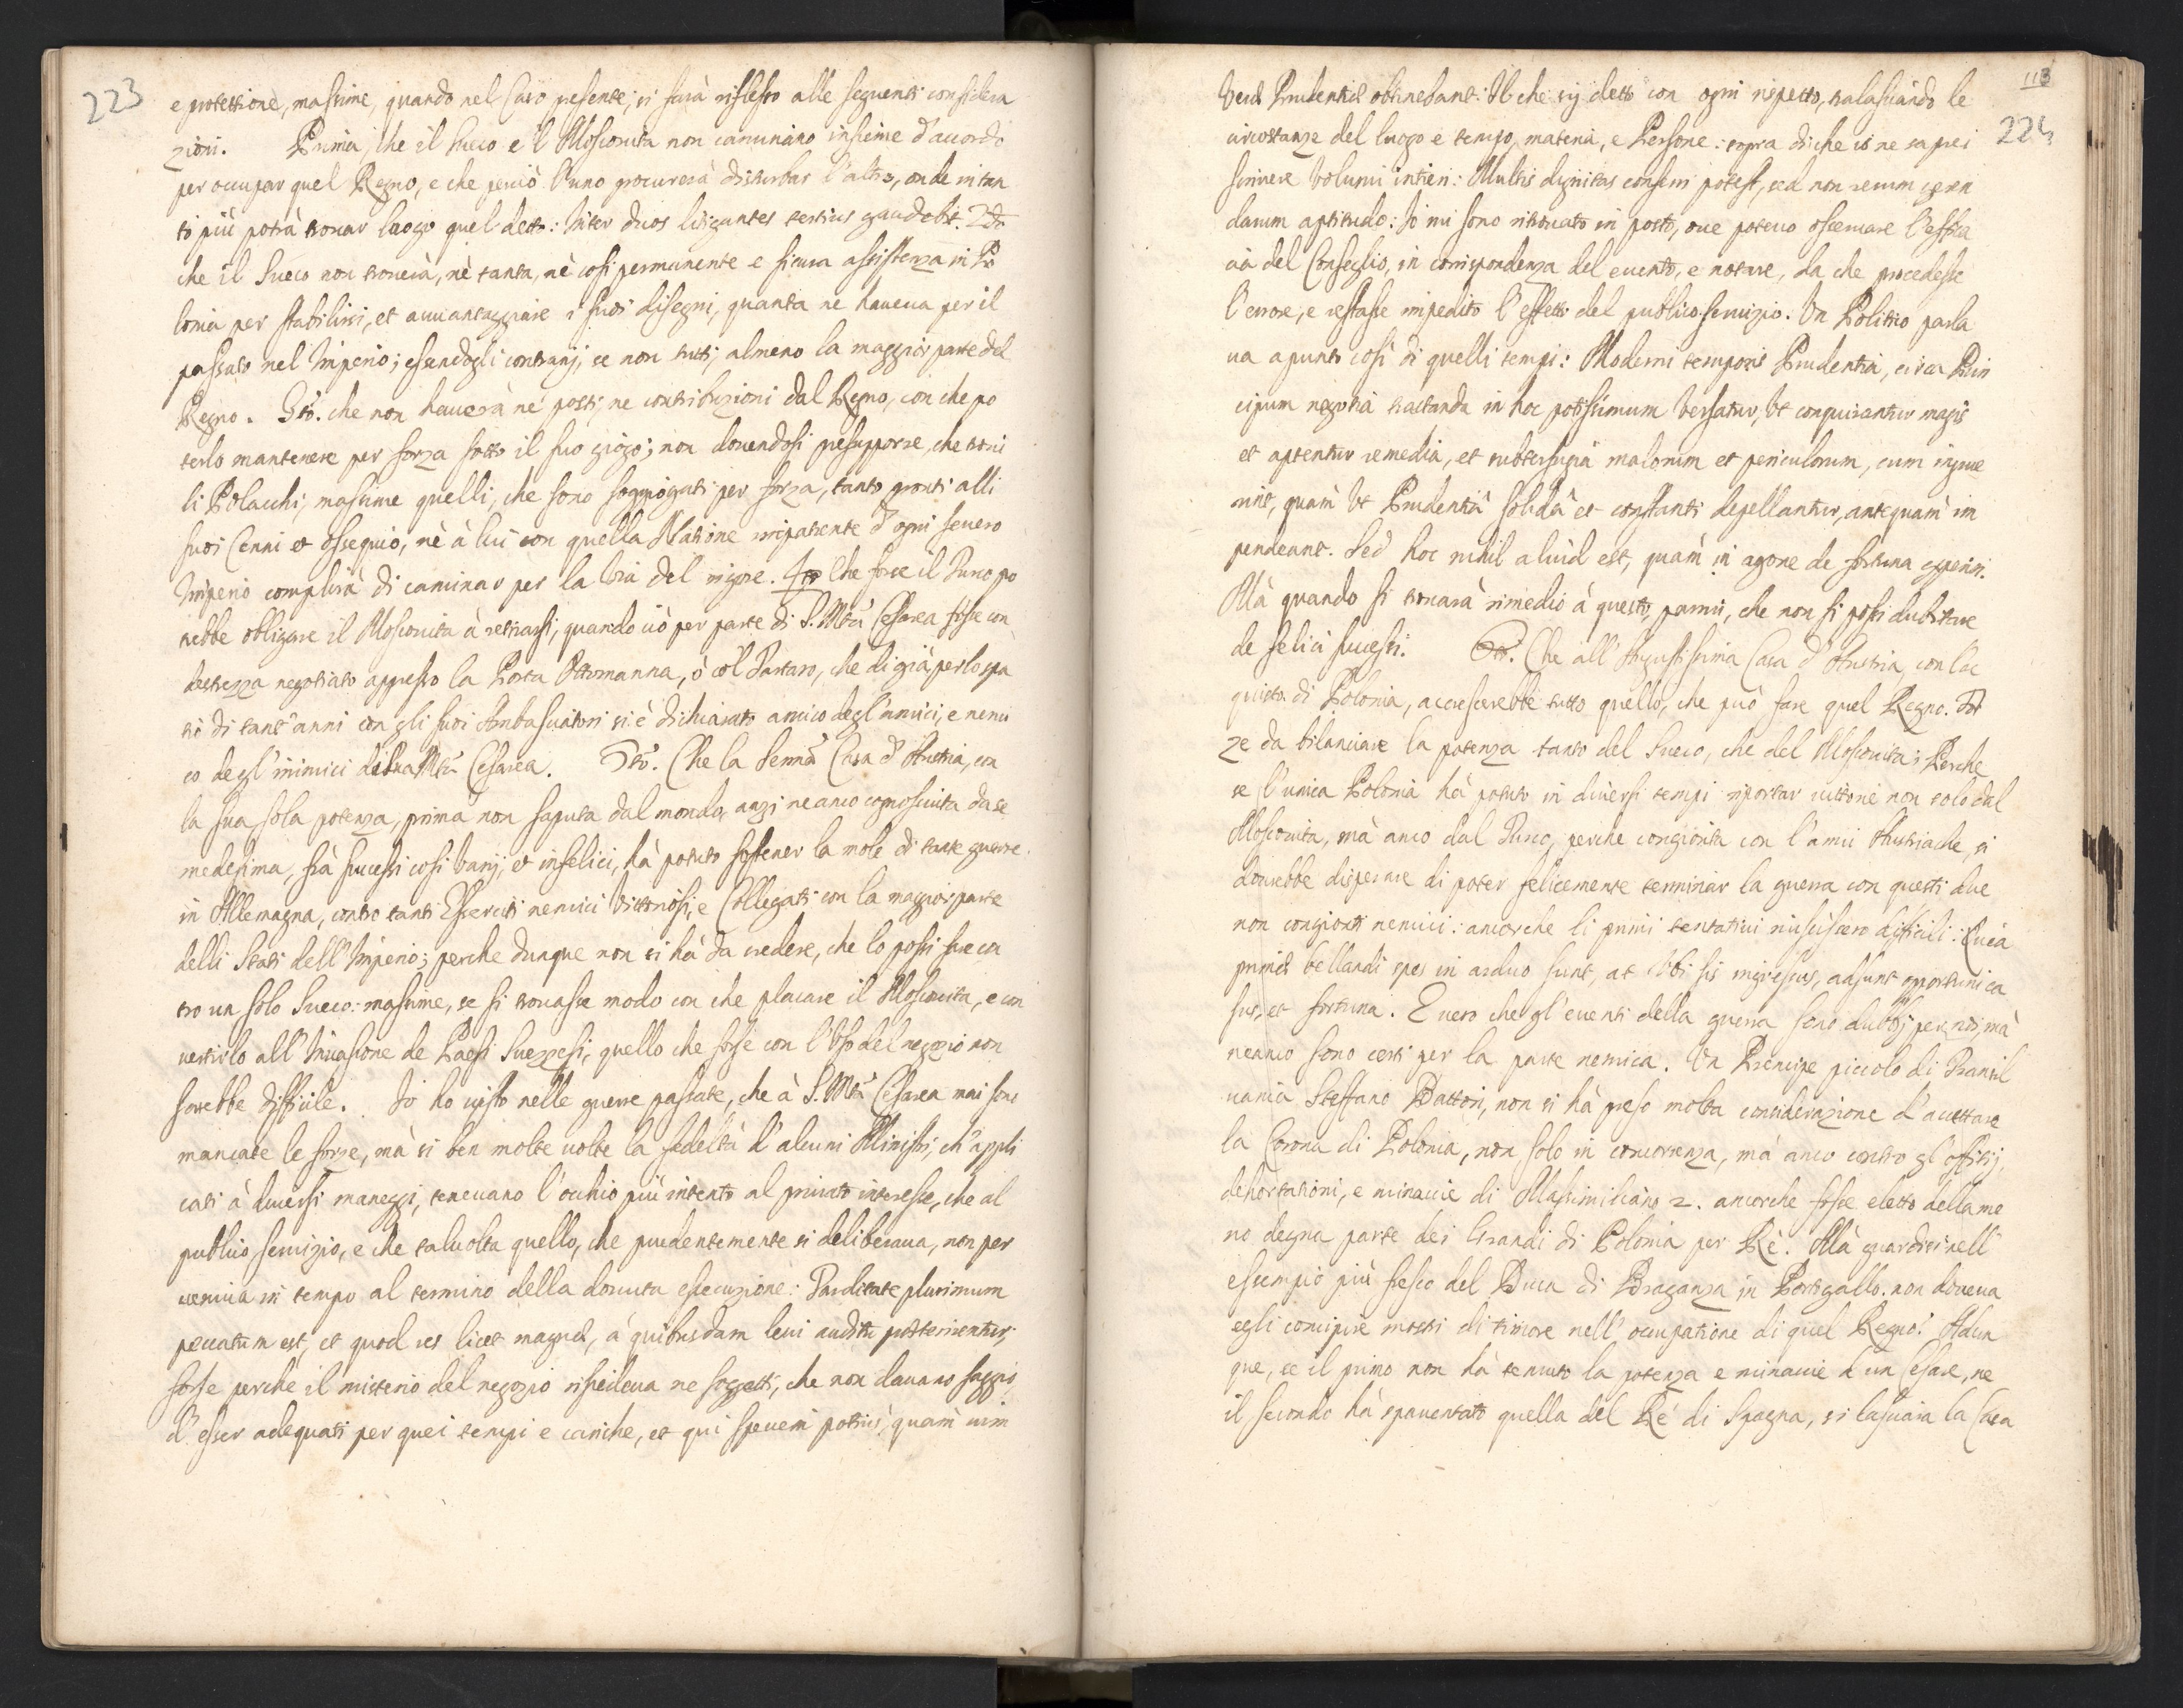 223
e protettione, massime, quando nel Caso presente, si farà riflesso alle seguenti considera
zioni. Prima, che il Sueco e'l Moscovita non caminano insieme d'accordo
per occupar quel Regno, e che perciò l'uno procurerà disturbar l'altro, onde in tan
to più potrà trovar luogo quel detto: Inter duos litigantes tertius gaudebit. 2do
che il Sueco non troverà, nè tanta, nè così permanente e sicura assistenza in Po
lonia per stabilirsi, et avvantaggiare i suoi disegni, quanta ne haveva per il
passato nel Imperio; essendogli contrarij, se non tutti, almeno la maggior parte del
Regno. 3tô. che non haverà nè posti, ne contribuzioni dal Regno, con che po
terlo mantenere per forza sotto il suo giogo; non dovendosi presupporre, che tutti
li Polacchi, massime quelli, che sono soggiogati per forza, tanto pronti alli
suoi Cenni et ossequio, nè à lui con quella Natione impatiente d'ogni severo
Imperio complirà di caminar per la via del rigore. 4to Che forse il Turco po
trebbe obligare il Moscovita à retirarsi, quando ciò per parte di S. Mtà Cesarea fosse con
destrezza negotiato appresso la Porta Ottomanna, ò col Tartaro, che di già per lo spa
tio di tant'anni con gli suoi Ambasciatori si è dichiarato amico degl'amici, e nemi
co degl'inimici di Sua Mtà Cesarea. 5tô. Che la Sermâ Casa d'Austria, con
la sua sola potenza, prima non saputa dal mondo, anzi ne anco cognosciuta da se
medesima, frà successi così varij, et infelici, hà potuto sostener la mole di tante guerre
in Allemagna, contro tanti Eserciti nemici Vittoriosi, e Collegati con la maggior parte
delli Stati dell'Imperio; perche dunque non si hà da credere, che lo possi fare con
tro un solo Sueco: massime, se si trovasse modo con che placare il Moscovita, e con
vertirlo all'Invasione de Paesi Suezzesi, quello che forse con l'Uso del negozio non
sarebbe difficile. Io ho visto nelle guerre passate, che à S. Mtà Cesarea mai sono
mancate le forze, mà si ben molte volte la fedeltà d'alcuni Ministri, ch'appli
cati à diversi maneggi, tenevano l'occhio più intento al privato interesse, che al
publico servizio, e che talvolta quello, che prudentemente si deliberava, non per
veniva in tempo al termino della dovuta essecuzione: Tarditate plurimum
peccatum est, et quod res licet magnæ, à quibusdam levi auditu præterirentur;
forse perche il misterio del negozio risiedeva ne soggetti, che non davano saggio
d'esser adequati per quei tempi e cariche, et qui speciem potius, quàm vim
113
224
Veræ Prudentiæ obtinebant: Il che sij detto con ogni rispetto, tralasciando le
circostanze del luogo e tempo, materia, e Persone: sopra di che io ne saprei
scrivere Volumi intieri: Multis dignitas conferri potest, sed non rerum geren
darum aptitudo: Io mi sono ritrovato in posto, ove potevo osservare l'effica
cia del Conseglio, in corrispondenza del evento, e notare, da che procedesse
l'errore, e restasse impedito l'effetto del publico servizio. Un Politico parla
va apunto così di quelli tempi: Moderni temporis Prudentia, circa Prin
cipum negotia tractanda in hoc potissimum Versatur, Ut conquirantur magis
et aptentur remedia, et subterfugia malorum et periculorum, cum ingrue
rint, quàm Ut Prudentiâ solidâ et constanti depellantur, antequàm im
pendeant. Sed hoc nihil aliud est, quàm in agone de fortuna experiri.
Mà quando si trovarà rimedio à questo, parmi, che non si possi dubitare
de felici successi. 6to. Che all'Augustissima Casa d'Austria, con l'ac
quisto di Polonia, accrescerebbe tutto quello, che può fare quel Regno. For
ze da bilanciare la potenza tanto del Sueco, che del Moscovita; Perche
se l'unica Polonia hà potuto in diversi tempi riportar vittorie non solo dal
Moscovita, mà anco dal Turco, perche congionta con l'armi Austriache, si
dovrebbe disperare di poter felicemente terminar la guerra con questi due
non congionti nemici: ancorche li primi tentativi riuscissero difficili: Quia
primæ bellandi spes in arduo sunt, at Ubi sis ingressus, adsunt opportuni ca
sus, et fortuna. E vero che gl'eventi della guerra sono dubbij per noi, mà
neanco sono certi per la parte nemica. Un Prencipe piccolo di Transil
vania Steffano Battori, non si hà preso molta considerazione d'accettare
la Corona di Polonia, non solo in concorrenza, mà anco contro gl'offitij,
dehortationi, e minaccie di Massimiliano 2. ancorche fosse eletto dalla me
no degna parte dei Grandi di Polonia per Rè. Mà guardisi nell'
essempio più fresco del Duca di Braganza in Portugallo. non doveva
egli concipire motti di timore nell'occupatione di quel Regno? Adun
que, se il primo non hà temuto la potenza e minaccie d'un Cesare, ne
il secondo hà spaventato quella del Rè di Spagna, si lasciaria la Casa